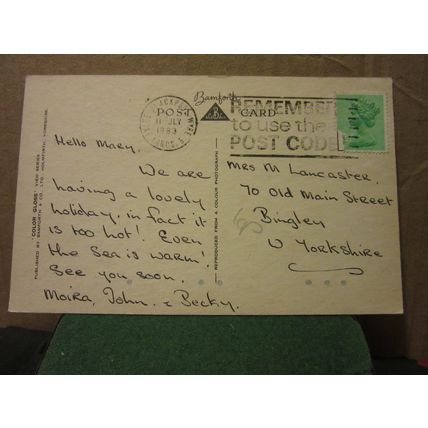 Bamforth
POST CARD
11 JLY
1983
LANCS. A
REMEMBER
to use the
POST CODE
Hello Mary,
We are
having a lovely
holiday, in fact it
is too hot! Even
the Sea is warm!
See you soon.
Moira, John. & Becky.
Mrs M Lancaster.
70 Old Main Street
Bingley
W Yorkshire
"COLOR-GLOSS" VIEW SERIES
PUBLISHED BY BAMFORTH & CO. LTD. HOLMFIRTH, YORKSHIRE.
REPRODUCED FROM A COLOUR PHOTOGRAPH